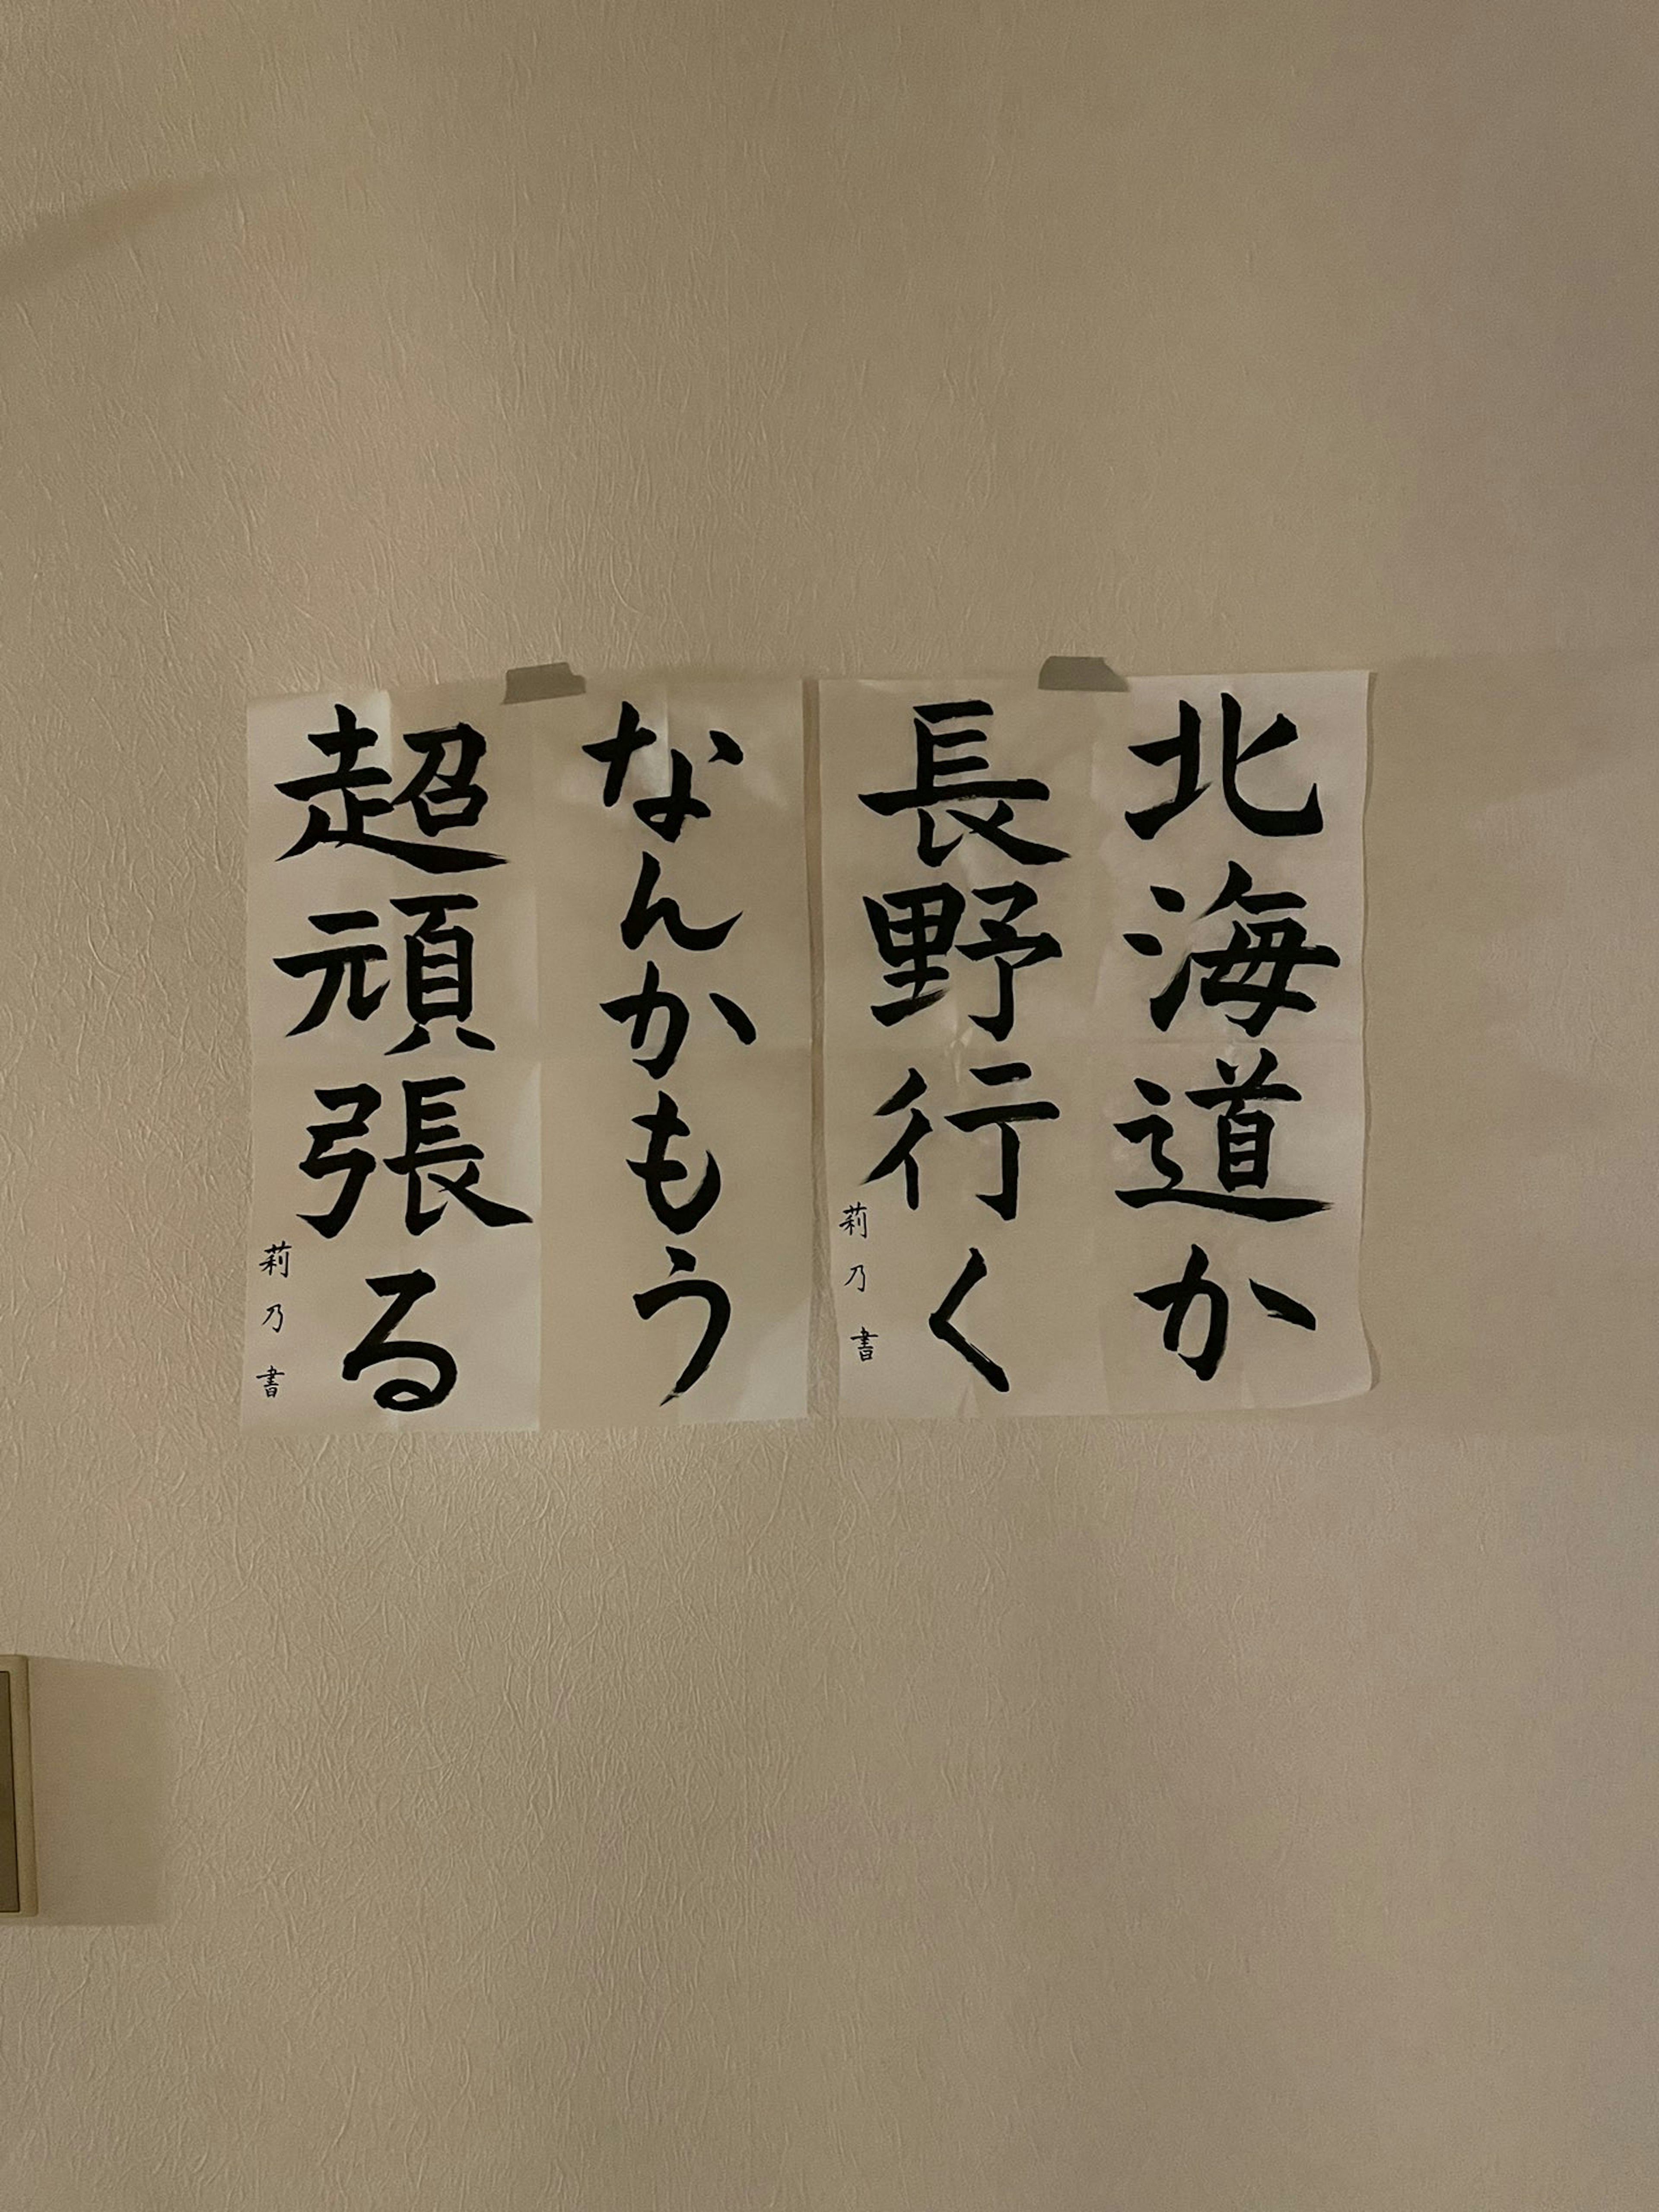 北海道か
長野行く
莉乃書
なんかもう
超頑張る
莉乃書